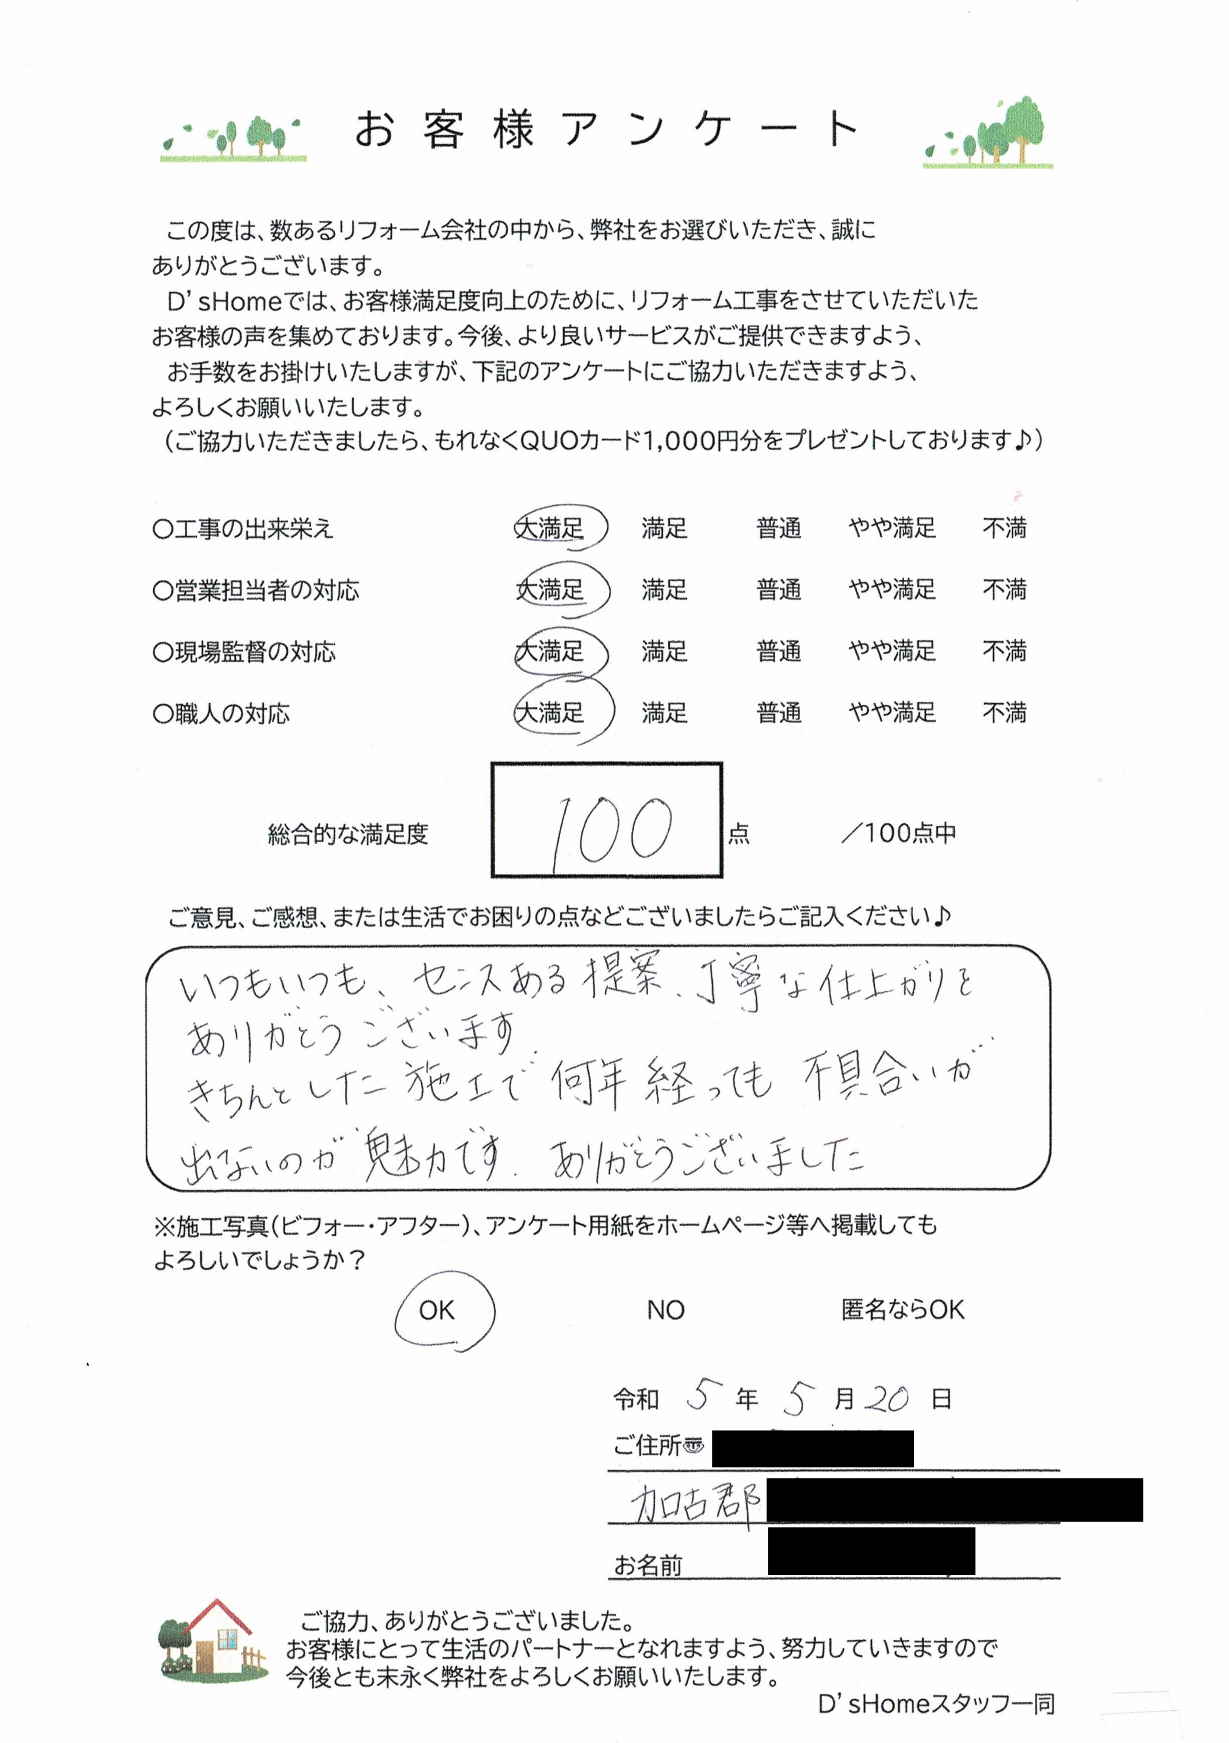 お客様アンケート
この度は、数あるリフォーム会社の中から、弊社をお選びいただき、誠に
ありがとうございます。
D'sHomeでは、お客様満足度向上のために、リフォーム工事をさせていただいた
お客様の声を集めております。今後、より良いサービスがご提供できますよう、
お手数をお掛けいたしますが、下記のアンケートにご協力いただきますよう、
よろしくお願いいたします。
（ご協力いただきましたら、もれなくQUOカード1,000円分をプレゼントしております♪）
○工事の出来栄え 大満足 満足 普通 やや満足 不満
○営業担当者の対応 大満足 満足 普通 やや満足 不満
○現場監督の対応 大満足 満足 普通 やや満足 不満
○職人の対応 大満足 満足 普通 やや満足 不満
総合的な満足度 100 点 ／100点中
ご意見、ご感想、または生活でお困りの点などございましたらご記入ください♪
いつもいつも、センスある提案、丁寧な仕上がりと
ありがとうございます.
きちんとした施工で何年経っても不具合いが
出ないのが魅力です. ありがとうございました
※施工写真(ビフォー・アフター)、アンケート用紙をホームページ等へ掲載しても
よろしいでしょうか？
OK NO 匿名ならOK
令和 5 年 5 月 20 日
ご住所〠
加古郡
お名前
ご協力、ありがとうございました。
お客様にとって生活のパートナーとなれますよう、努力していきますので
今後とも末永く弊社をよろしくお願いいたします。
D'sHomeスタッフ一同